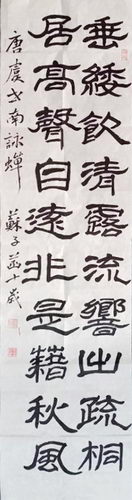 垂緌飲清露流響出疏桐
居高聲自遠非是藉秋風
唐虞世南詠蟬
蘇子茵十歲